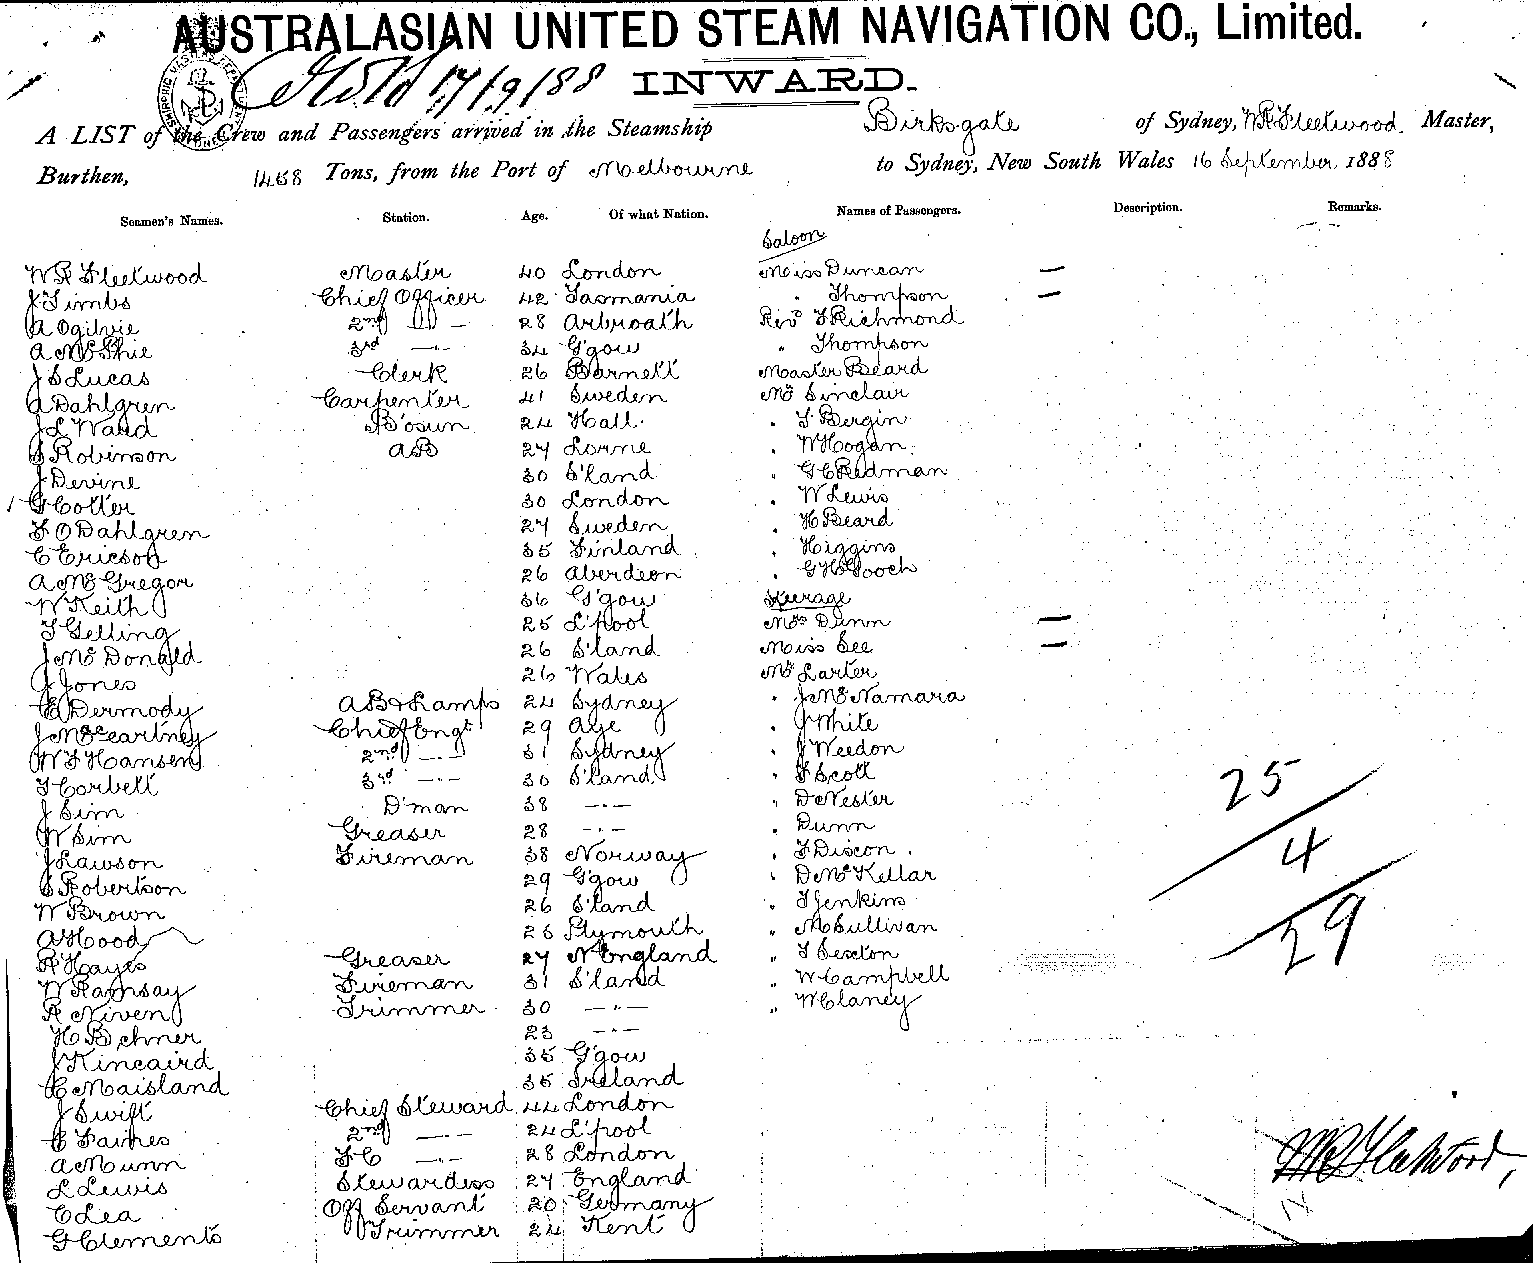 AUSTRALASIAN UNITED STEAM NAVIGATION CO., Limited.
17/9/88 INWARD.
A LIST of the Crew and Passengers arrived in the Steamship Birksgate of Sydney, W R Fleetwood. Master,
Burthen, 1458 Tons, from the Port of Melbourne to Sydney, New South Wales 16 September 1888
Seamen's Names. Station. Age. Of what Nation. Names of Passengers. Description. Remarks.
Saloon
W R Fleetwood Master 40 London Miss Duncan —
J Timbs Chief Officer 42 Tasmania " Thompson —
A Ogilvie 2nd —"— 28 Arbroath Revd T Richmond
A McPhie 3rd —"— 34 G'gow " Thompson
J S Lucas Clerk 26 Barnett Master Beard
A Dahlgren Carpenter 41 Sweden Mr Sinclair
J L Ward B'osun 24 Hall. " T Bergin
S Robinson AB 27 Lorne " W Hogan.
J Devine 30 S'land " G C Redman
G Cotter 30 London " W Lewis
F O Dahlgren 27 Sweden " H Beard
C Ericson 35 Finland " Higgins
A McGregor 26 Aberdeen " G H Gooch
W Keith 36 G'gow Steerage
T Gelling 25 L'pool Mrs Dunn —
J McDonald 26 S'land Miss See —
J Jones 26 Wales Mr Larter
C Dermody AB & Lamps 24 Sydney " J McNamara
J McCartney Chief Engr 29 Aye " J White
W F Hansen 2nd —"— 31 Sydney " J Weedon
T Corbett 3rd —"— 30 S'land " F Scott
J Sim D'man 38 —"— " D Nester
W Sim Greaser 28 —"— " Dunn
J Lawson Fireman 38 Norway " T Discon
S Robertson 29 G'gow " D McKellar
W Brown 26 S'land " T Jenkins
A Hood 26 Plymouth " M Sullivan
R Hayes Greaser 27 N England " T Sexton
W Ramsay Fireman 31 S'land " W Campbell
R Niven Trimmer 30 —"— " W Claney
H Behmer 23 —"—
J Kincaird 35 G'gow
C Maisland 35 Ireland
J Swift Chief Steward 44 London
C Fairnes 2nd —"— 24 L'pool
A Munn F C —"— 28 London
L Lewis Stewardess 27 England
C Lea Off Servant 20 Germany
G Clements Trimmer 24 Kent
25
4
29
W R Fleetwood,